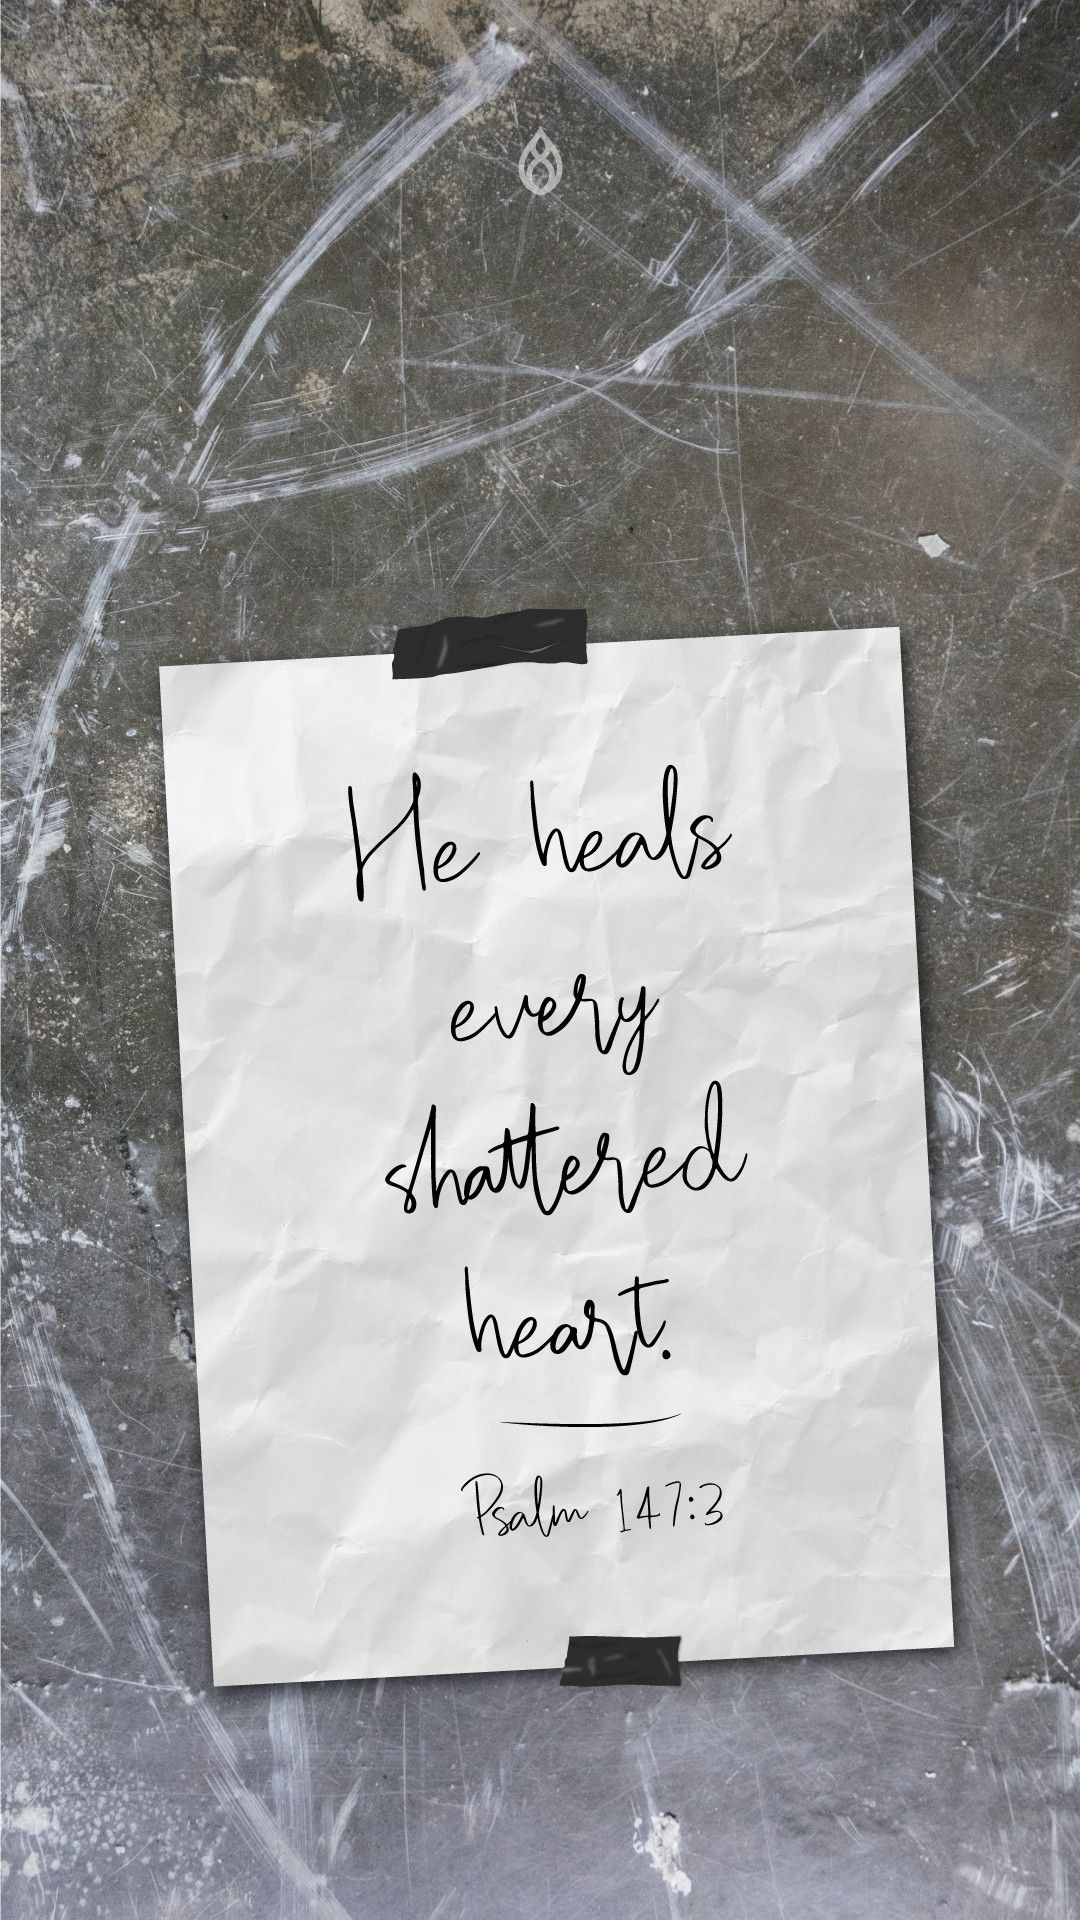 He heals
every
shattered
heart.
Psalm 147:3